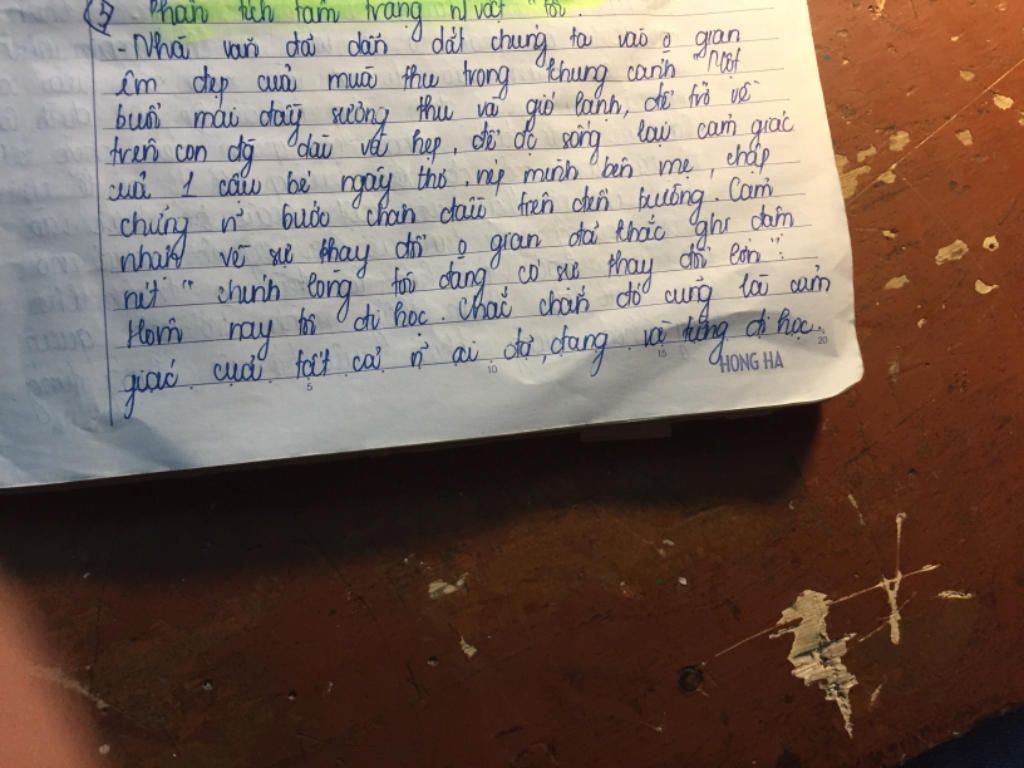 ③ Phân tích tâm trạng n/vật "tôi".
- Nhà văn đã dẫn dắt chúng ta vào o gian
êm đẹp của mùa thu trong khung cảnh "Một
buổi mai đầy sương thu và gió lạnh, để trở về
trên con đg dài và hẹp, để đc sống lại cảm giác
của 1 cậu bé ngây thơ, nép mình bên mẹ, chập
chững n~ bước chân đầu trên đến trường. Cảm
nhận về sự thay đổi o gian đã khắc ghi đậm
nét "chính lòng tôi đang có sự thay đổi lớn":
Hôm nay tôi đi học. Chắc chắn đó cũng là cảm
giác của tất cả n~ ai đã, đang và từng đi học.
5 10 15 20
HONG HA